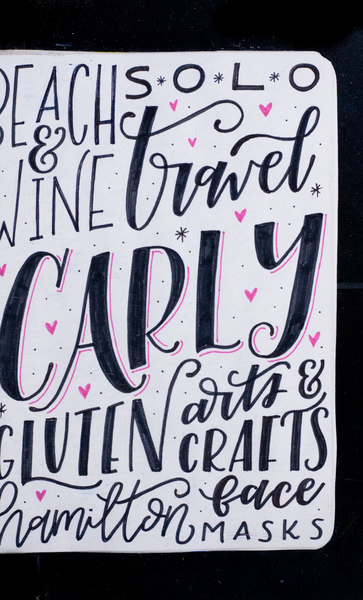 BEACH
&
WINE
SOLO
travel
CARLY
GLUTEN
hamilton
arts &
CRAFTS
face
MASKS